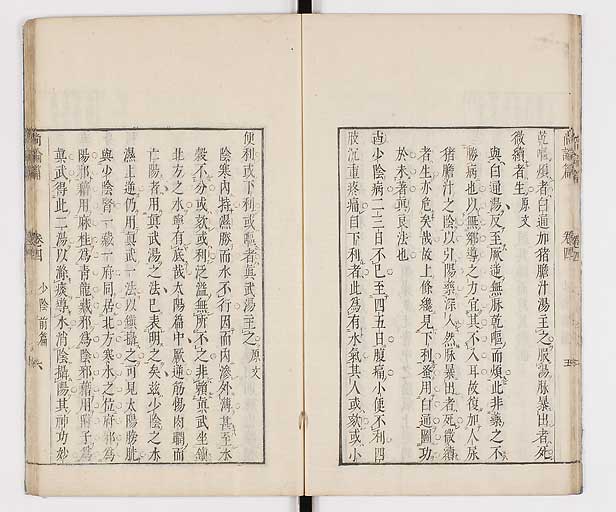 乾嘔煩者白通加猪膽汁湯主之服湯脉暴出者死
微續者生原文
與白通湯反至厥逆無脉乾嘔而煩此非藥之不
勝病也以無鄉導之力宜其不入耳故復加人尿
猪膽汁之陰以引陽藥深入然脉暴出者死微續
者生亦危矣哉故上條纔見下利蚤用白通圖功
於未著真良法也
少陰病二三日不已至四五日腹痛小便不利四
肢沉重疼痛自下利者此為有水氣其人或欬或小
尚論篇
卷四
五
便利或下利或嘔者真武湯主之原文
陰寒內持濕勝而水不行因而內滲外薄甚至水
穀不分或欬或利泛溢無所不之非賴真武坐鎮
北方之水寧有底哉太陽篇中厥逆筋惕肉瞤而
亡陽者用真武湯之法已表明之矣茲少陰之水
濕上逆仍用真武一法以鎮攝之可見太陽膀胱
與少陰腎一臟一府同居北方寒水之位府邪為
陽邪藉用麻桂為青龍臟邪為陰邪藉用附子為
真武得此二湯以滌痰導水消陰攝陽其神功妙
尚論篇
卷四
少陰前篇
六